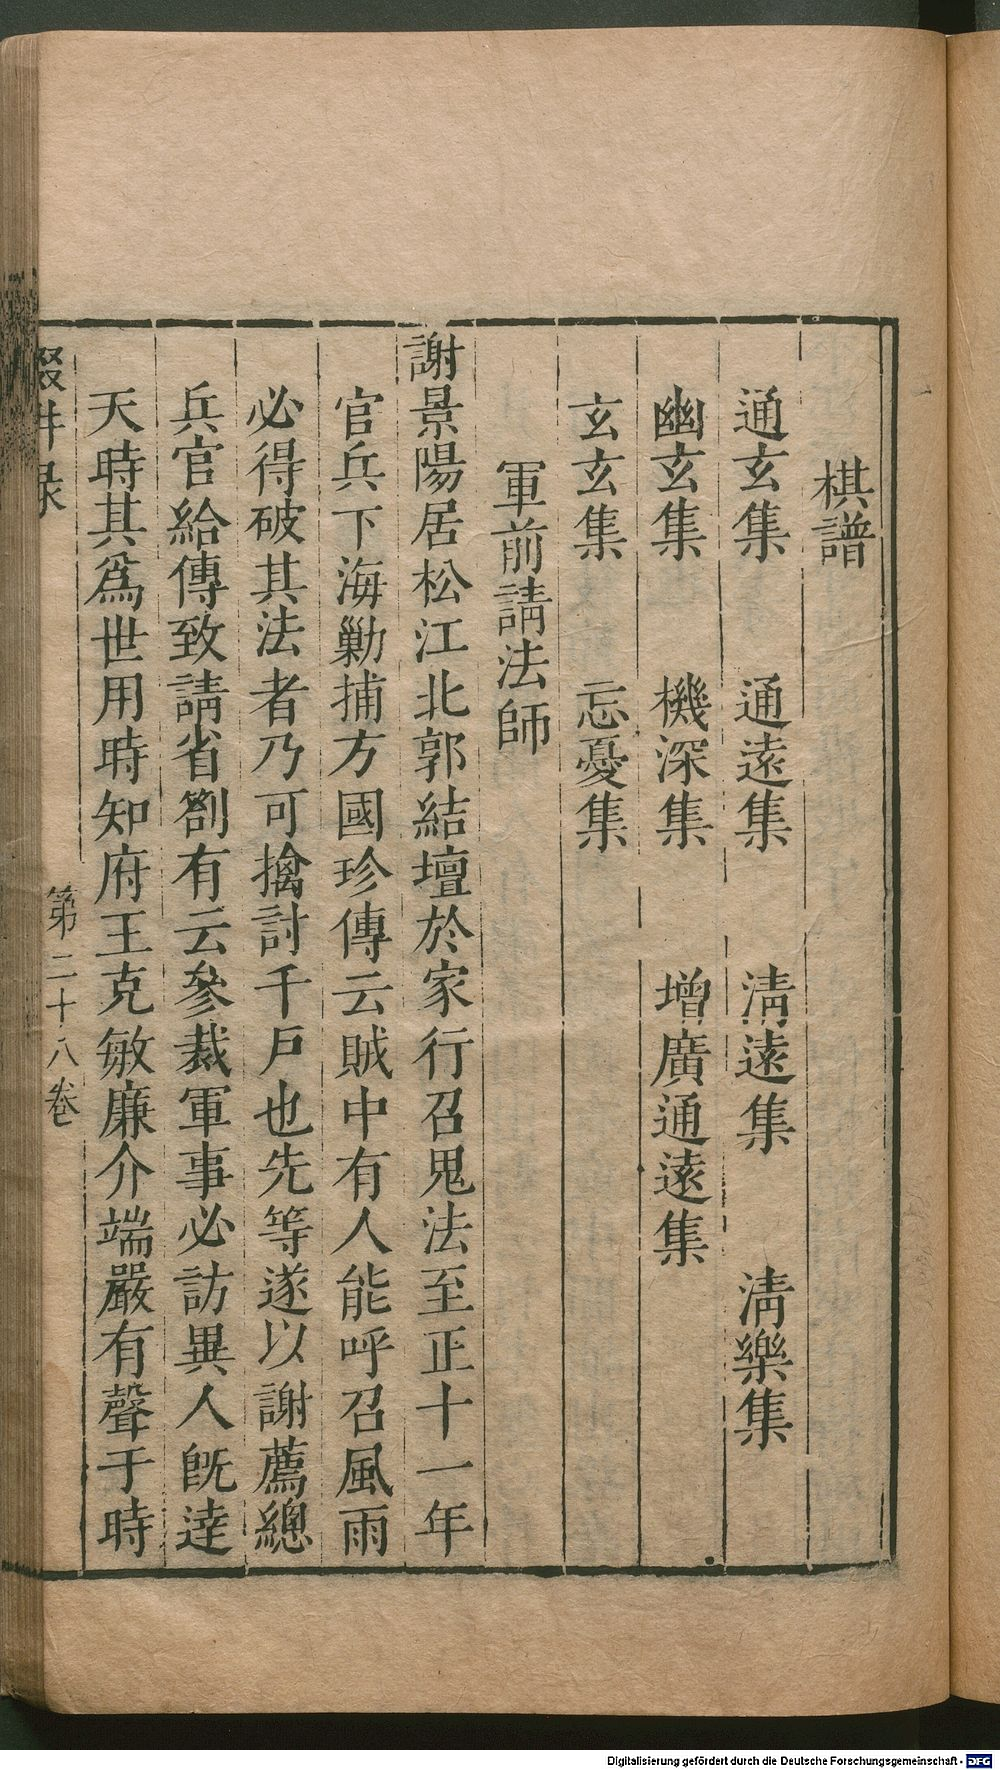 棋譜
通玄集　通遠集　清遠集　清樂集
幽玄集　機深集　增廣通遠集
玄玄集　忘憂集
軍前請法師
謝景陽居松江北郭結壇於家行召鬼法至正十一年
官兵下海勦捕方國珍傳云賊中有人能呼召風雨
必得破其法者乃可擒討千戶也先等遂以謝薦總
兵官給傳致請省劄有云參裁軍事必訪異人旣達
天時其爲世用時知府王克敏廉介端嚴有聲于時
輟畊录
第二十八卷
Digitalisierung gefördert durch die Deutsche Forschungsgemeinschaft - DFG